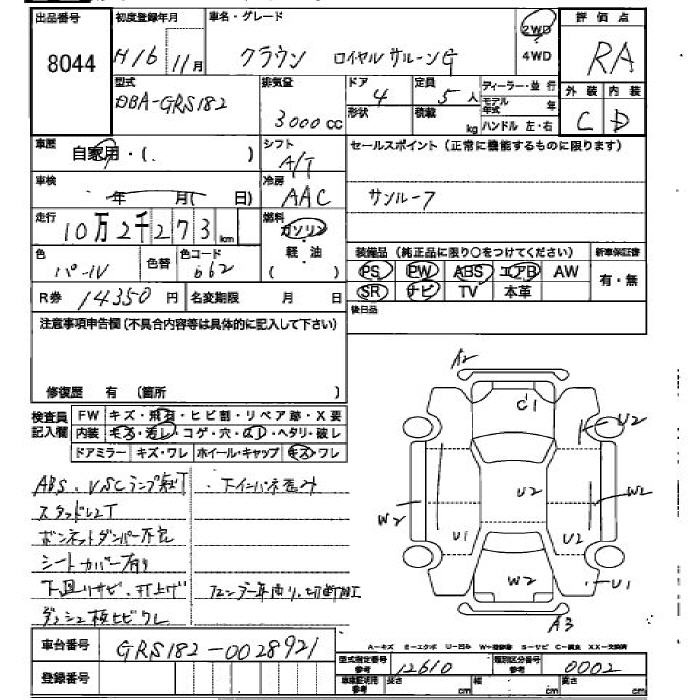 出品番号
8044
初度登録年月
H16年11月
車名・グレード
クラウン ロイヤルサルーンG
2WD
4WD
評価点
RA
型式
DBA-GRS182
排気量
3000cc
ドア
4
形状
定員
5人
積載
kg
ディーラー・並行
モデル年式 年
ハンドル 左・右
外装
C
内装
D
車歴
自家用・( )
シフト
A/T
セールスポイント(正常に機能するものに限ります)
サンルーフ
車検
年 月( 日)
冷房
AAC
走行
10万2千273km
燃料
ガソリン
軽油
( )
色
パール
色替
色コード
062
装備品(純正品に限り○をつけてください)
新車保証書
PS PW ABS エアB AW
SR ナビ TV 本革
有・無
R券 14350円
名変期限 月 日
後日品
注意事項申告欄(不具合内容等は具体的に記入して下さい)
修復歴 有(箇所 )
検査員記入欄
FW キズ・飛石・ヒビ割・リペア跡・X要
内装 キズ・汚レ・コゲ・穴・ハリ・ヘタリ・破レ
ドアミラー キズ・ワレ ホイール・キャップ キズ・ワレ
ABS、VSCランプ点灯
下インパネ歪み
スタッドレスT
ボンネットダンパー不良
シートカバー有り
下廻りサビ、打上げ
フェンダー耳周り、切断加工
ダッシュ板ヒビワレ
A2
C1
U2
U2
W2
W2
U1
U2
W2
U1
A3
A-キズ E-エクボ U-凹み W-補修跡 S-サビ C-腐食 XX-交換済
車台番号
GRS182-0028921
型式指定番号
参考
12610
類別区分番号
参考
0002
登録番号
長さ cm
幅 cm
高さ cm